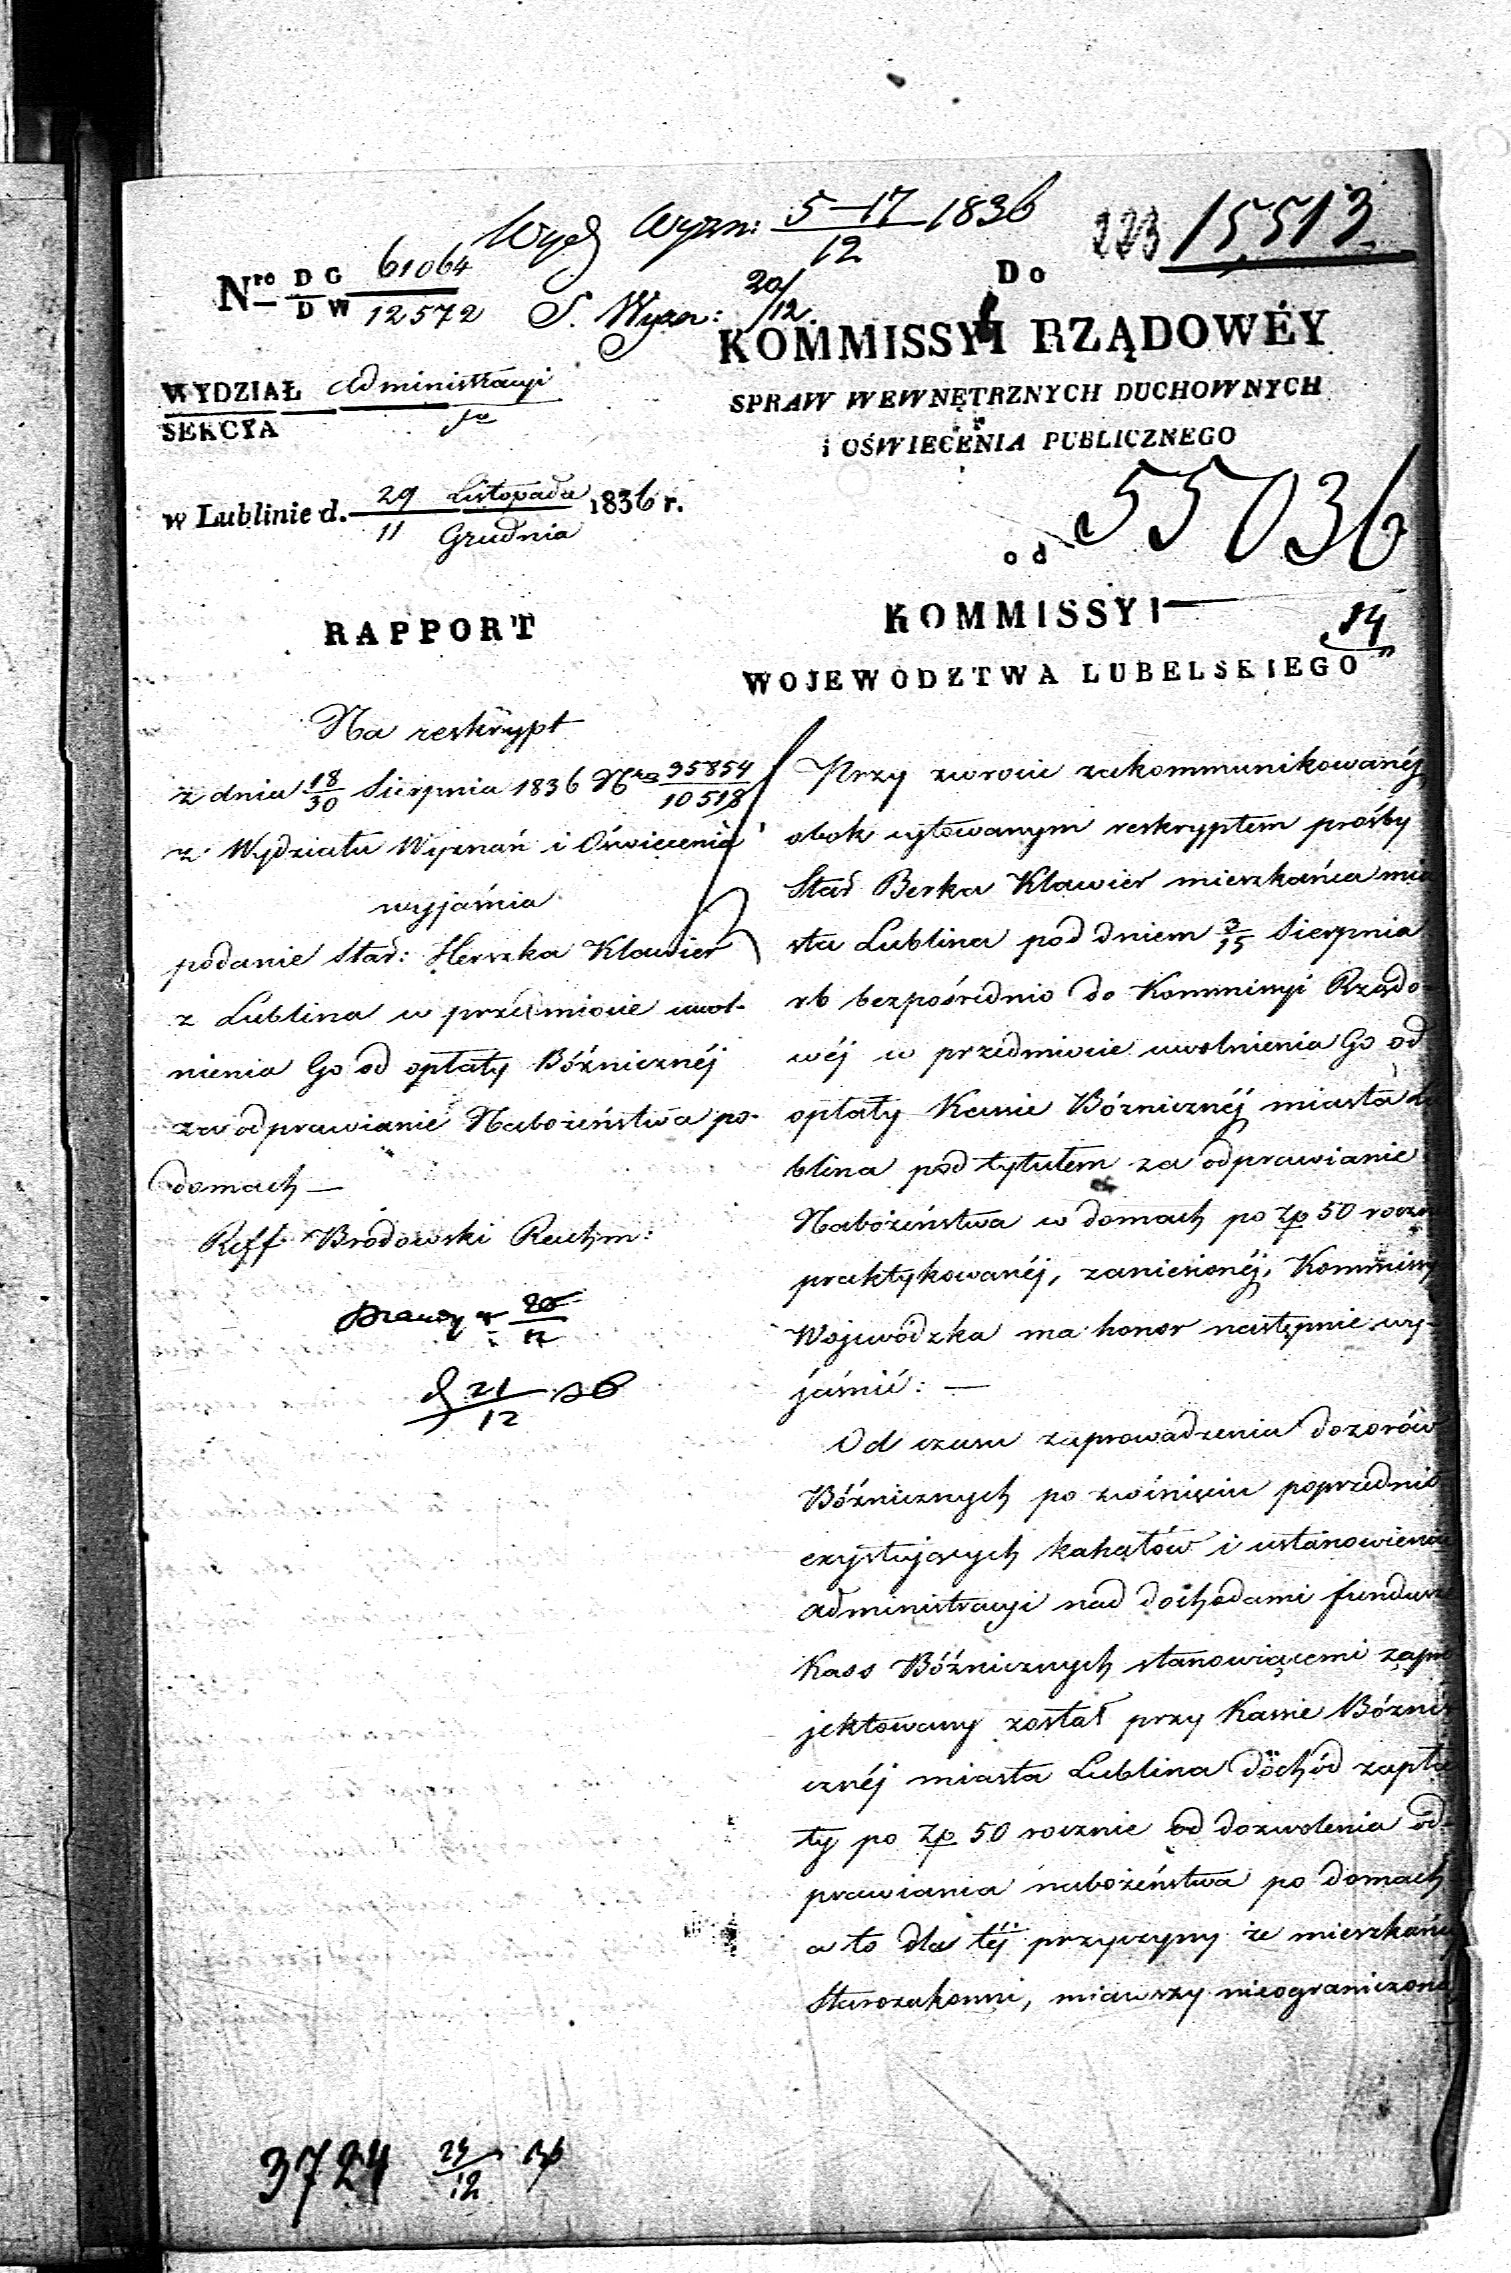 Wyd Wyzn: 5–17/12 1836
223 15,513.
Nro D G 61064
D W 12572
S. Wyzn: 20/12.
Do
KOMMISSYI RZĄDOWÉY
SPRAW WEWNĘTRZNYCH DUCHOWNYCH
i OŚWIECENIA PUBLICZNEGO
WYDZIAŁ Administracyi
SEKCYA
w Lublinie d. 29 Listopada / 11 Grudnia 1836 r.
55036
od
KOMMISSYI
14
WOJEWODZTWA LUBELSKIEGO
RAPPORT
Na reskrypt
z dnia 18/30 Sierpnia 1836 Nro 35854/10518
z Wydziału Wyznań i Oświecenia
wyjaśnia
podanie Star: Herszka Klawier
z Lublina w przedmiocie uwol-
nienia Go od opłaty Bóżnicznéj
za odprawianie Nabożeństwa po
domach —
Reff Brodowski Rachm:
20/12
21/12 36
Przy zwrocie zakommunikowanéj
obok cytowanym reskryptem prośby
Star Berka Klawier mieszkańca mia
sta Lublina pod dniem 3/15 Sierpnia
rb bezpośrednio do Kommissyi Rządo-
wéj w przedmiocie uwolnienia Go od
opłaty Kassie Bóżnicznéj miasta Lu
blina pod tytułem za odprawianie
Nabożeństwa w domach po Zp 50 roczn
praktykowanéj, zaniesionéj, Kommissy
Wojewodzka ma honor następnie wy-
jaśnić: —
Od czasu zaprowadzenia dozorów
Bóżnicznych po zwinięciu poprzednio
exystujących kahałów i ustanowieniu
administracyi nad dochodami fundusz
Kass Bóżnicznych stanowiącemi zapro
jektowany został przy Kassie Bóżni
cznéj miasta Lublina dochód zapła
ty po Zp 50 rocznie od dozwolenia od-
prawiania nabożeństwa po domach
a to dla téj przyczyny że mieszkańcy
Starozakonni, miawszy nieograniczoné
3724 24/12 36